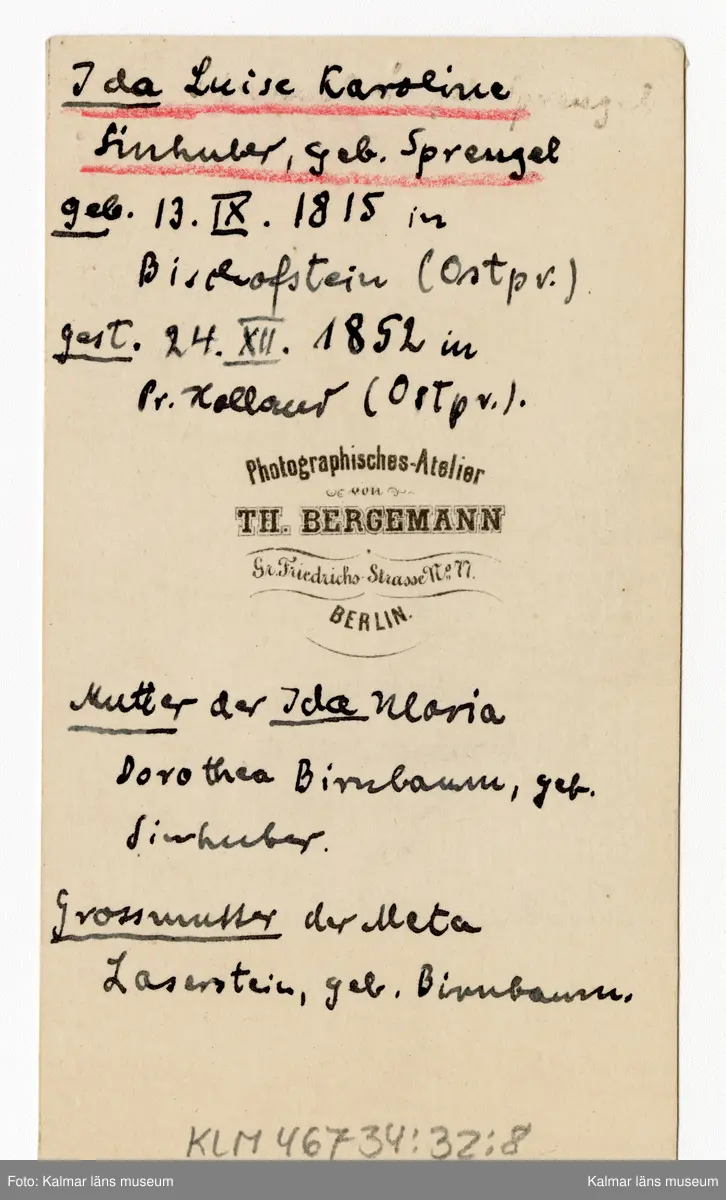 Ida Luise Karoline
Sprengel
Sinhuber, geb. Sprengel
geb. 13. IX. 1815 in
Bischofstein (Ostpr.)
gest. 24. XII. 1852 in
Pr. Holland (Ostpr.).
Photographisches-Atelier
von
TH. BERGEMANN
Gr. Friedrichs-Strasse No. 77.
BERLIN.
Mutter der Ida Maria
Dorothea Birnbaum, geb.
Sinhuber.
Grossmutter der Meta
Laserstein, geb. Birnbaum.
KLM 46734:32:8
Foto: Kalmar läns museum
Kalmar läns museum